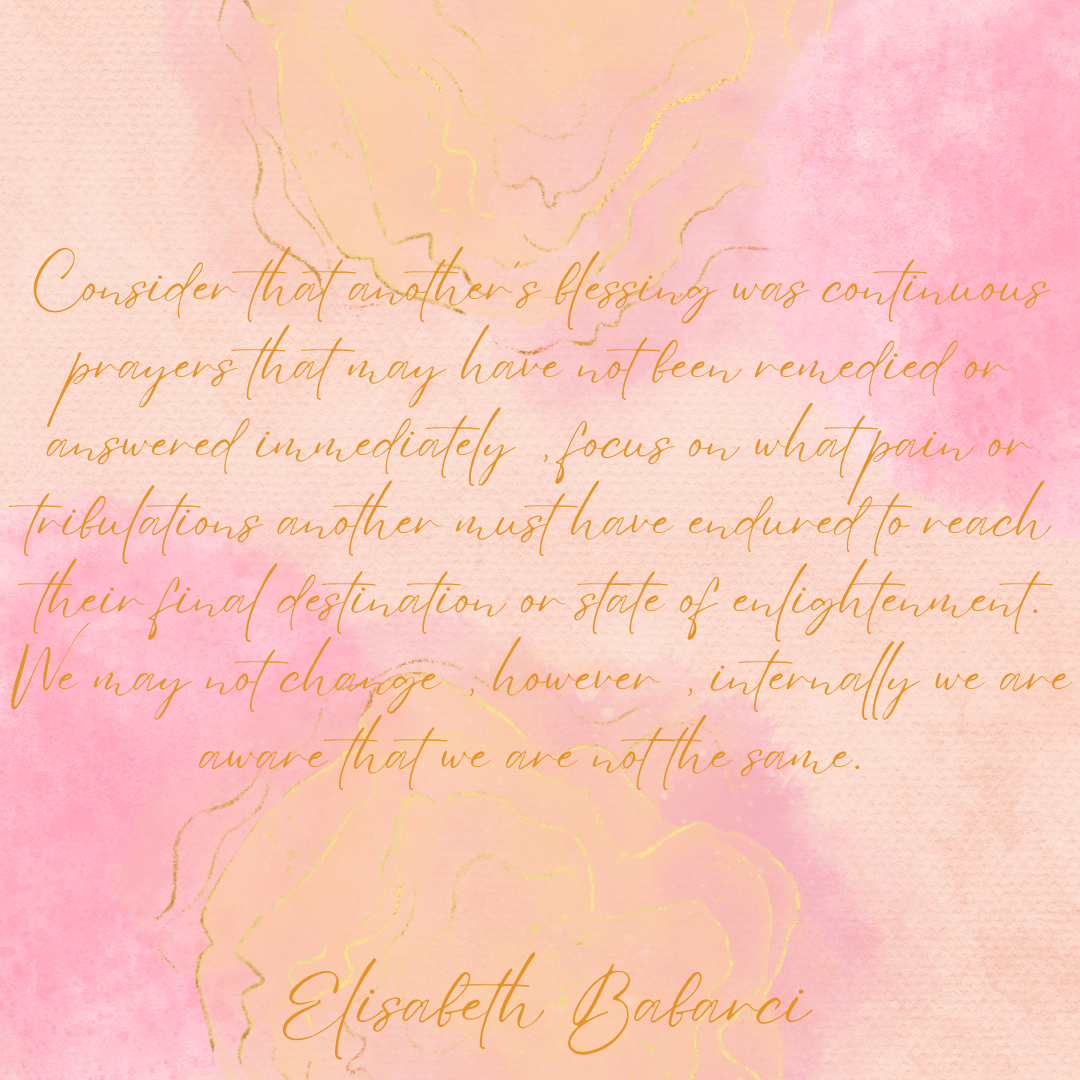 Consider that another's blessing was continuous
prayers that may have not been remedied or
answered immediately , focus on what pain or
tribulations another must have endured to reach
their final destination or state of enlightenment.
We may not change , however , internally we are
aware that we are not the same.
Elisabeth Babarci